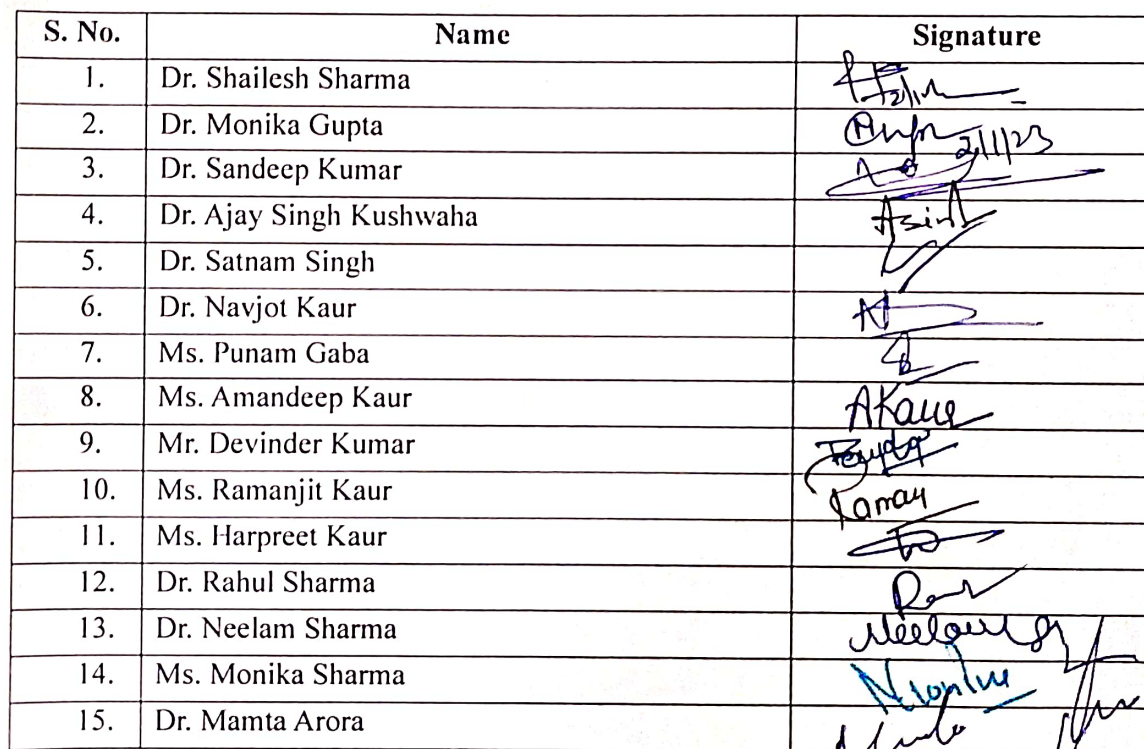 S. No. Name Signature
1. Dr. Shailesh Sharma
2. Dr. Monika Gupta
2/1/23
3. Dr. Sandeep Kumar
4. Dr. Ajay Singh Kushwaha
5. Dr. Satnam Singh
6. Dr. Navjot Kaur
7. Ms. Punam Gaba
8. Ms. Amandeep Kaur AKaur
9. Mr. Devinder Kumar
10. Ms. Ramanjit Kaur Raman
11. Ms. Harpreet Kaur
12. Dr. Rahul Sharma
13. Dr. Neelam Sharma Neelam
14. Ms. Monika Sharma
15. Dr. Mamta Arora